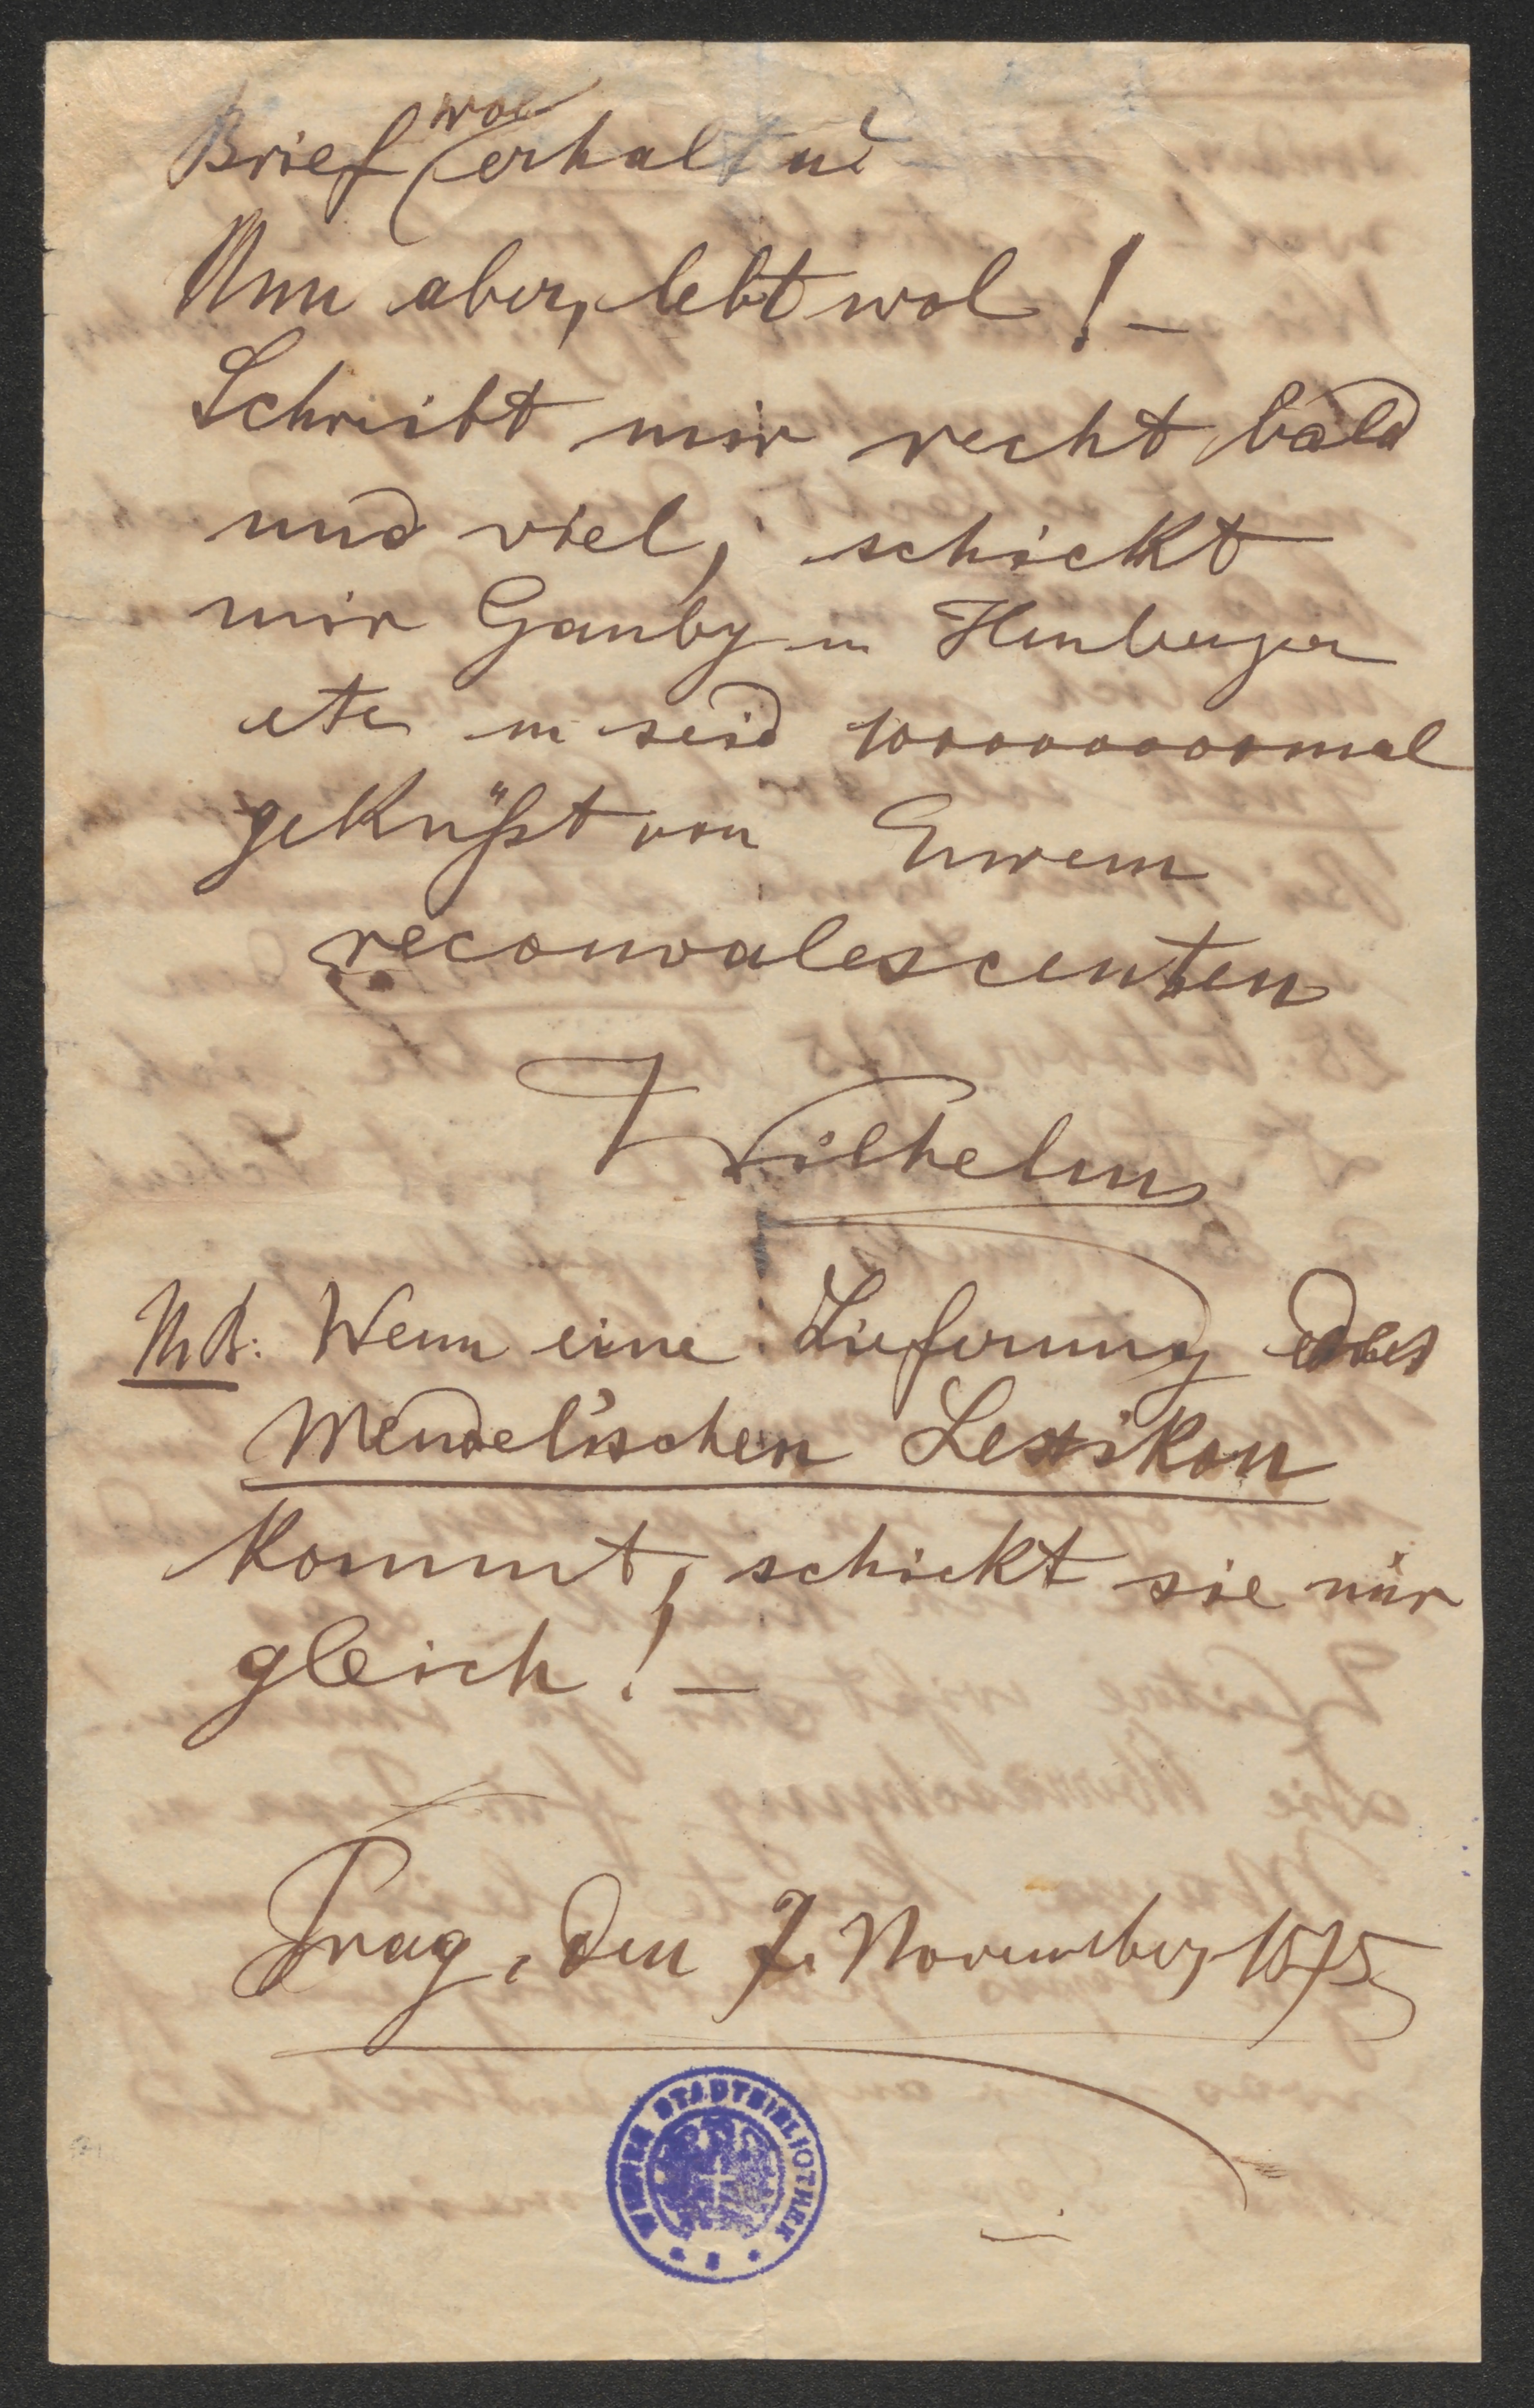 Brief wol erhalten?
Nun aber, lebt wol! –
Schreibt mir recht bald
und viel, schickt
mir Gauby u
etc u seid 1000000000mal
geküßt von Eurem
reconvalescenten
Wilhelm
NB: Wenn eine Lieferung des
Mendel'schen Lexikon
kommt, schickt sie mir
gleich! –
Prag, den 7. November 1875
WIENER STADTBIBLIOTHEK